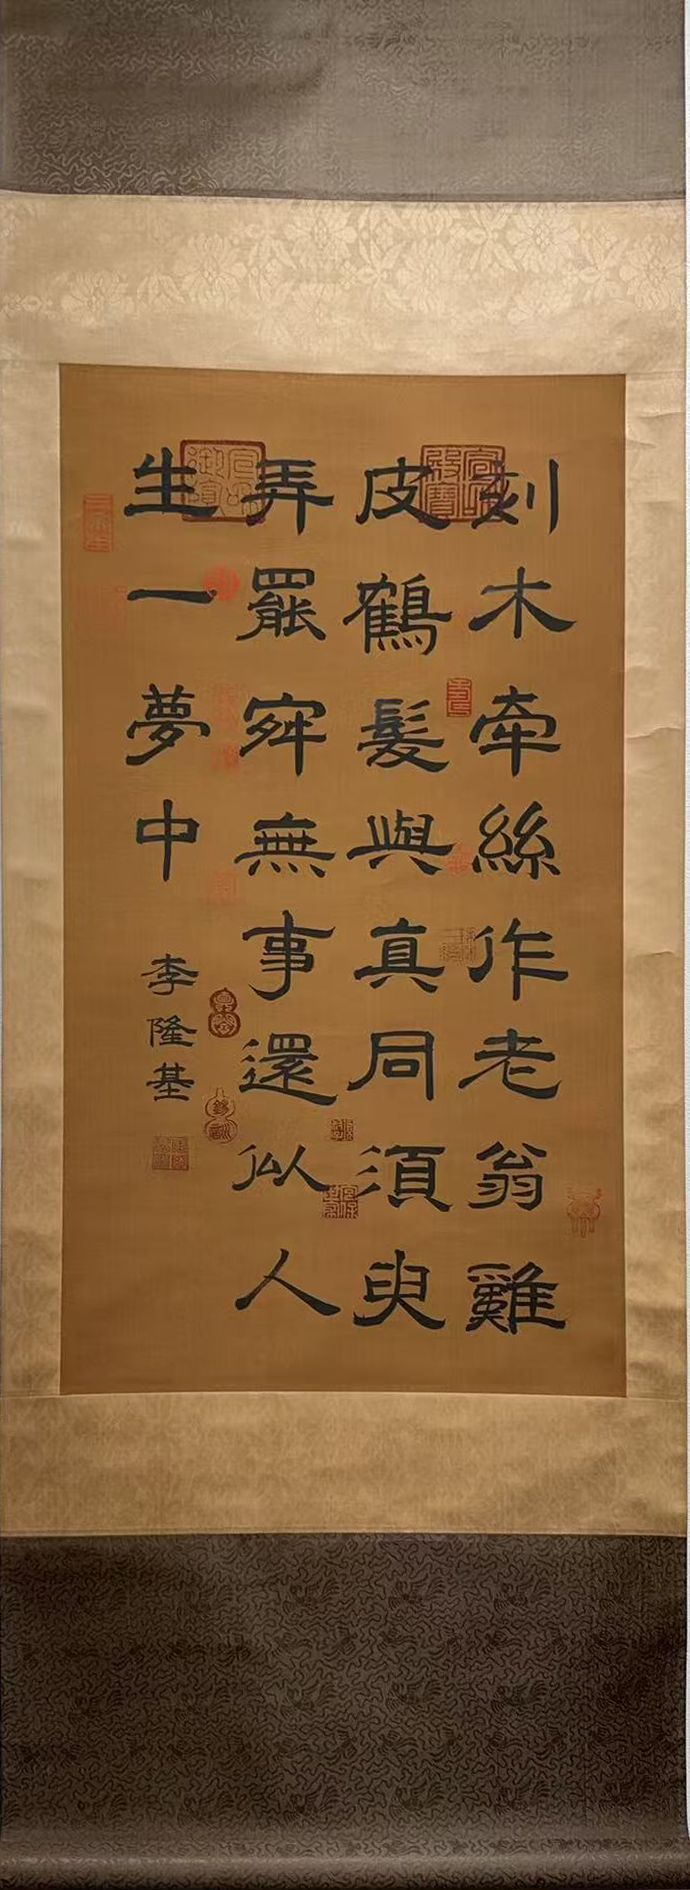 刻木牽絲作老翁雞
皮鶴髮與真同須臾
弄罷宑無事還似人
生一夢中
李隆基